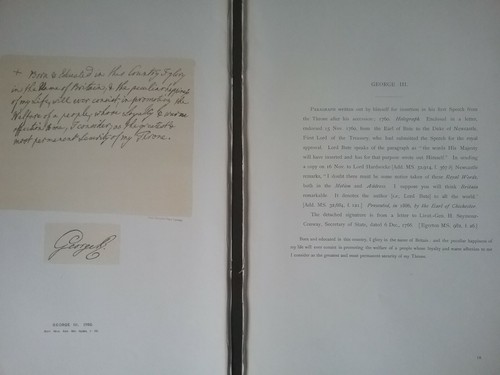 + Born & Educated in this Country I glory
in the Name of Britain; & the peculiar happiness
of my Life, will ever consist, in promoting the
Welfare of a people, whose Loyalty & warm
affection to me, I consider, as the greatest &
most permanent Security of my Throne.
George R.
GEORGE III. 1760.
GEORGE III.
Paragraph written out by himself for insertion in his first Speech from
the Throne after his accession; 1760. Holograph. Enclosed in a letter,
endorsed 15 Nov. 1760, from the Earl of Bute to the Duke of Newcastle,
First Lord of the Treasury, who had submitted the Speech for the royal
approval. Lord Bute speaks of the paragraph as "the words His Majesty
will have inserted and has for that purpose wrote out Himself." In sending
a copy on 16 Nov. to Lord Hardwicke [Add. MS.
remarks, "I doubt there must be some notice taken of these Royal Words,
both in the Motion and Address. I suppose you will think Britain
remarkable. It denotes the author [i.e. Lord Bute] to all the world."
[Add. MS. 32,684, f. 121.] Presented, in 1886, by the Earl of Chichester.
The detached signature is from a letter to Lieut.-Gen. H. Seymour
Conway, Secretary of State, dated 6 Dec., 1766. [Egerton MS. 982, f. 26.]
Born and educated in this country, I glory in the name of Britain; and the peculiar happiness of
my life will ever consist in promoting the welfare of a people whose loyalty and warm affection to me
I consider as the greatest and most permanent security of my Throne.